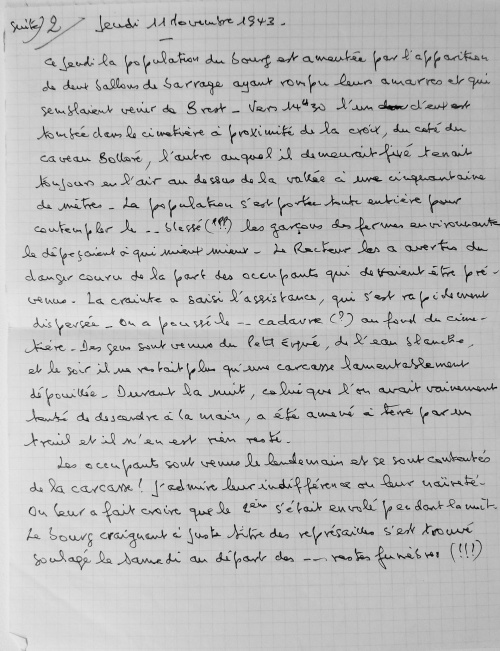 suite) 2 Jeudi 11 Novembre 1943.
Ce jeudi la population du bourg est ameutée par l'apparition
de deux ballons de barrage ayant rompu leurs amarres et qui
semblaient venir de Brest - Vers 14h30 l'un d'eux est
tombé dans le cimetière à proximité de la croix, du côté du
caveau Bolloré, l'autre auquel il demeurait fixé tenait
toujours en l'air au dessus de la vallée à une cinquantaine
de mètres - La population s'est portée toute entière pour
contempler le -- blessé (!!!) les garçons des fermes environnantes
le dépeçaient à qui mieux mieux - Le Recteur les a avertis du
danger couru de la part des occupants qui devaient être pré-
venus - La crainte a saisi l'assistance, qui s'est rapidement
dispersée - On a poussé le -- cadavre (?) au fond du cime-
tière - Des gens sont venus du Petit Ergué, de l'eau blanche,
et le soir il ne restait plus qu'une carcasse lamentablement
dépouillée - Durant la nuit, celui que l'on avait vainement
tenté de descendre à la main, a été amené à terre par un
treuil et il n'en est rien resté.
Les occupants sont venus le lendemain et se sont contentés
de la carcasse ! J'admire leur indifférence ou leur naïveté -
On leur a fait croire que le 2ème s'était envolé pendant la nuit -
Le bourg craignant à juste titre des représailles s'est trouvé
soulagé le samedi au départ des --- restes funèbres (!!!)